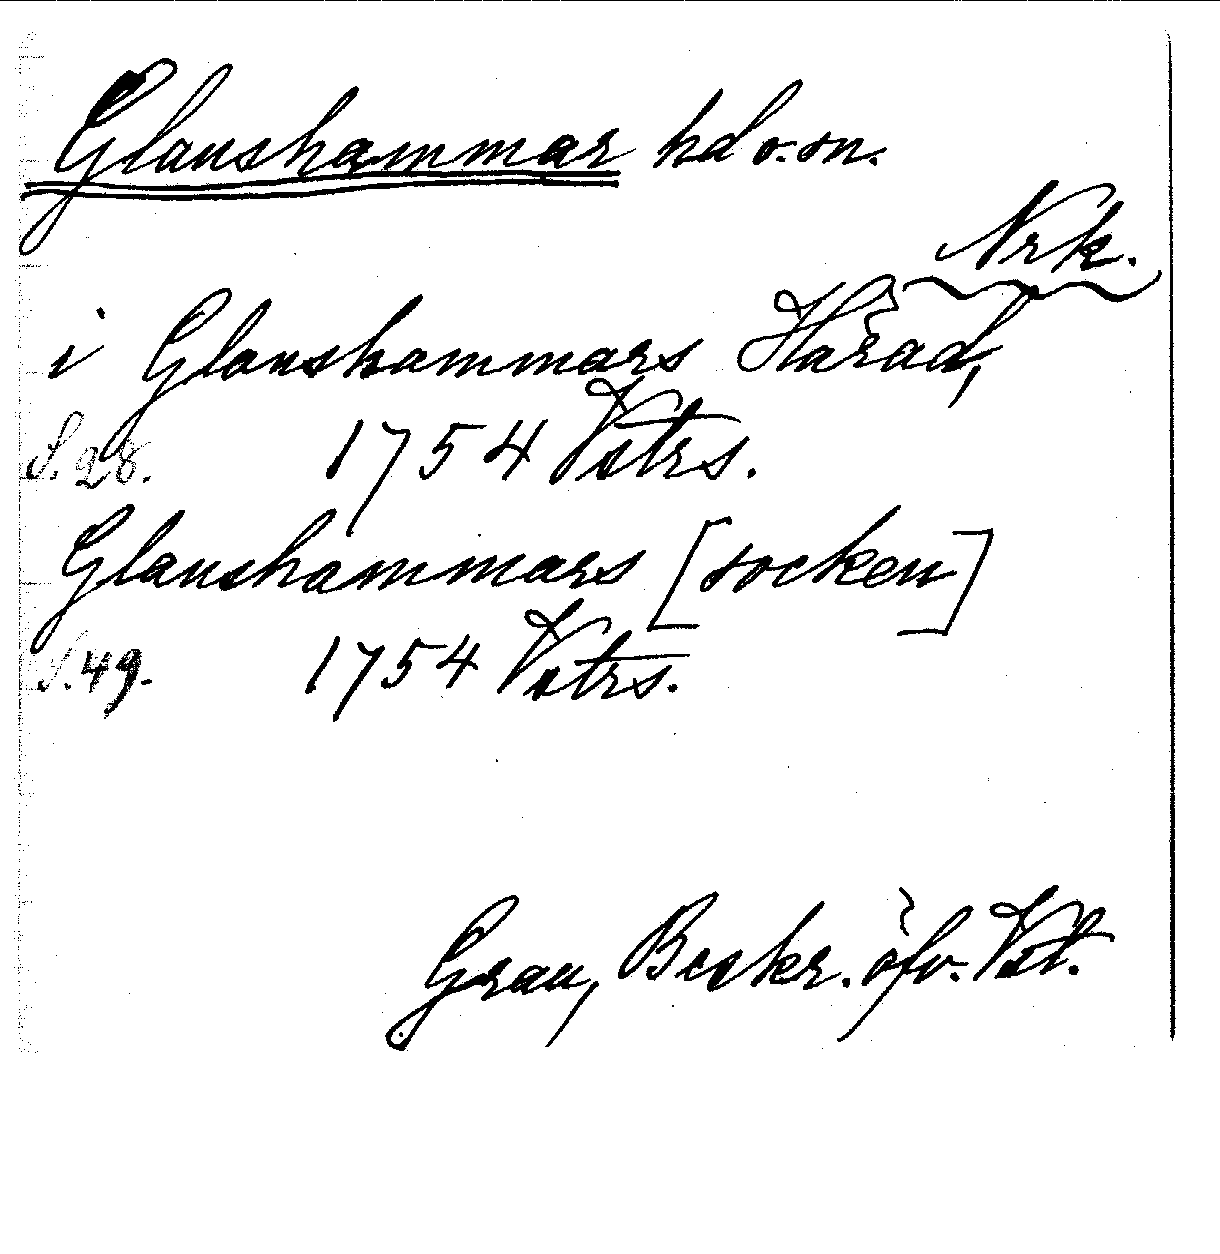 Glanshammar hd o. sn.
Nrk.
i Glanshammars Härad,
S. 28. 1754 Vstrs.
Glanshammars [socken]
S. 49. 1754 Vstrs.
Grau, Beskr. öfv. Vst.